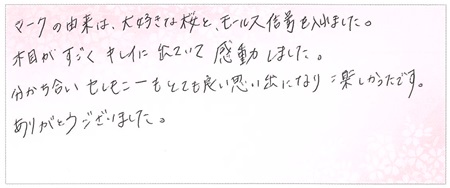 マークの由来は、大好きな桜と、モールス信号を入れました。
木目がすごくキレイに出ていて感動しました。
分かち合いセレモニーもとても良い思い出になり楽しかったです。
ありがとうございました。